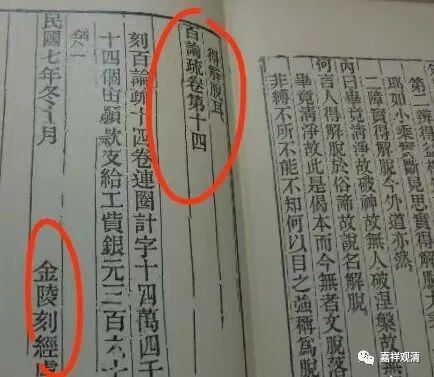 第二辨得益
耶如小乘實斷見思實得解脫
二障實得解脫今外道亦然
丙曰畢竟清淨故破神故無人破涅槃故無
何言人得解脫於俗諦故說名解脫
畢竟清淨故此是偈本而今無者文脫落
非縛不所不能不知何以目之強稱為脫
得解脫耳
百論疏卷第十四
刻百論疏十四卷連圈計字十四萬四千
十四個由願款支給工費銀元三百六十
民國七年冬月 金陵刻經處
嘉祥观清